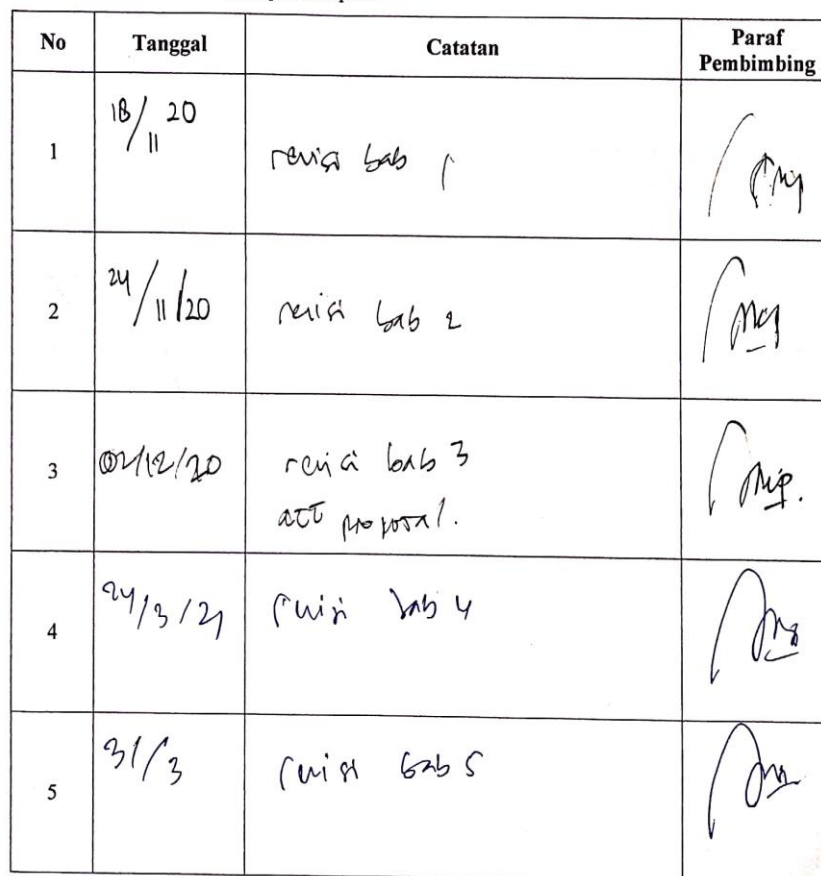 No Tanggal Catatan Paraf Pembimbing
1 18/11 20 revisi bab 1
2 24/11/20 revisi bab 2
3 02/12/20 revisi bab 3
acc proposal.
4 24/3/21 revisi bab 4
5 31/3 revisi bab 5